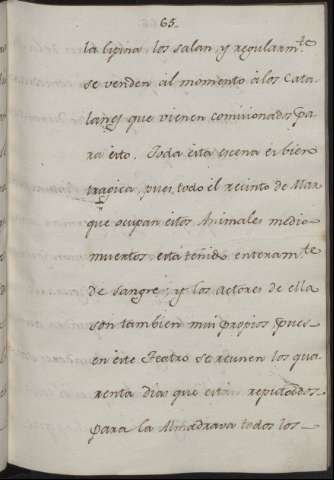 65.
la lipina los salan y regularm.te
se venden al momento á los Cata
lanes que vienen comisionados pa
ra esto. Toda esta escena es bien
tragica, pues todo el recinto de Mar
que ocupan estos Animales medio
muertos está teñido enteram.te
de sangre; y los actores de ella
son tambien mui propios pues
en este Teatro se reunen los qua
renta dias que están reputados
para la Almadrava todos los